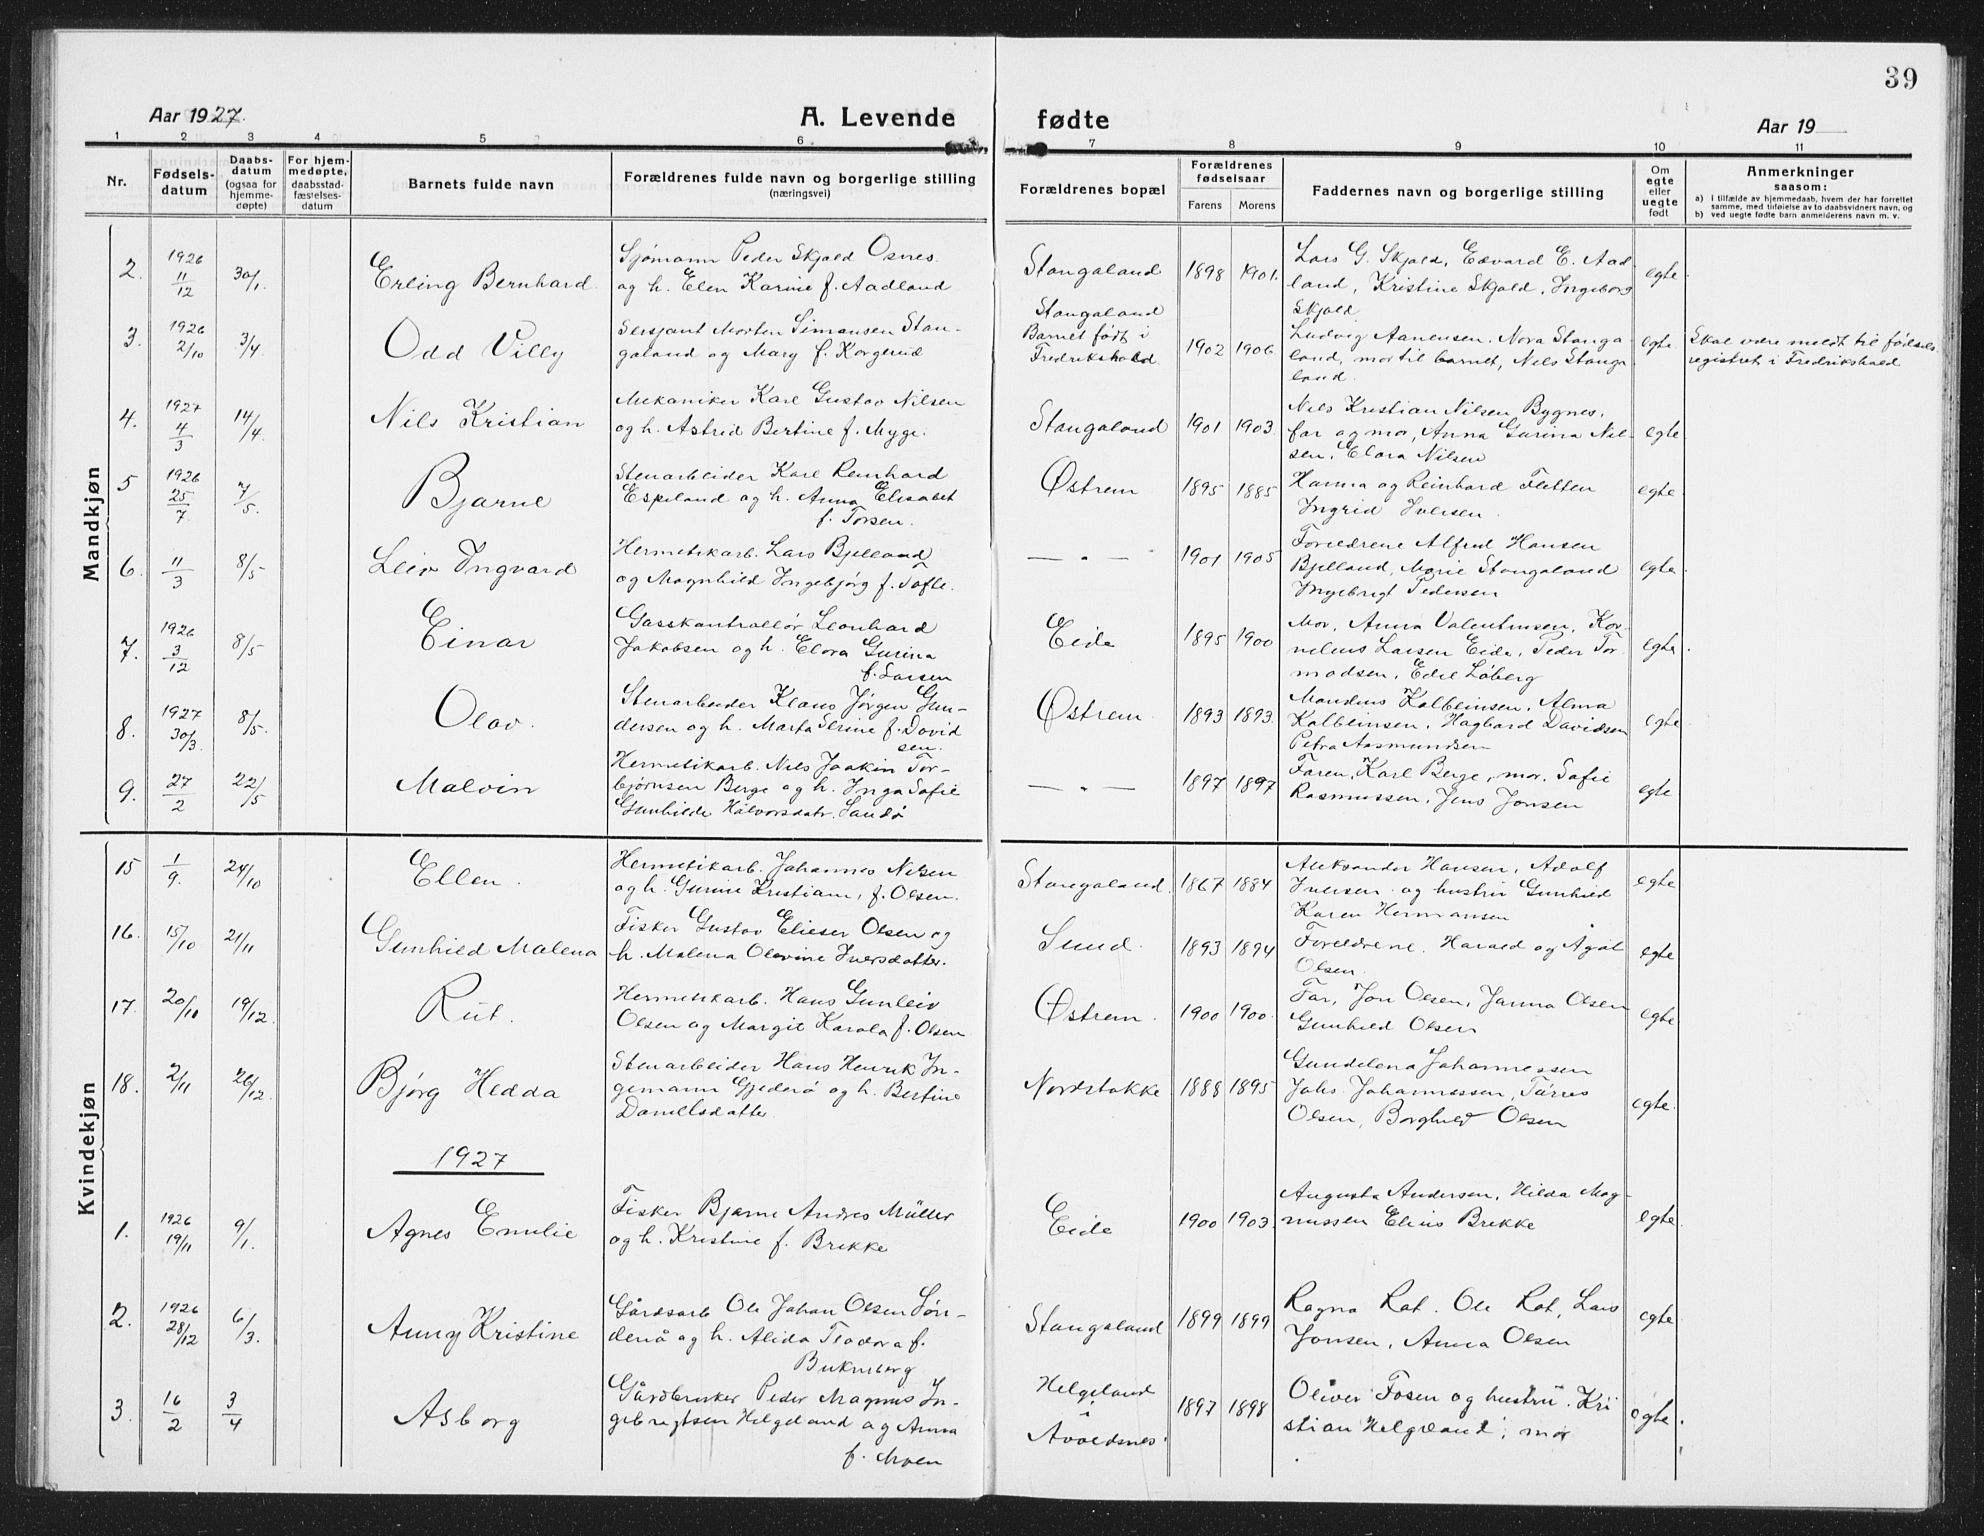 39
Aar 1927.
A. Levende
fødte
Aar 19
1 2 3 4 5 6 7 8 9 10 11
Nr.
Fødsels-
datum
Daabs-
datum
(ogsaa for
hjemme-
døpte)
For hjem-
medøpte,
daabsstad-
fæstelses-
datum
Barnets fulde navn
Forældrenes fulde navn og borgerlige stilling
(næringsvei)
Forældrenes bopæl
Forældrenes
fødselsaar
Farens Morens
Faddernes navn og borgerlige stilling
Om
egte
eller
uegte
født
Anmerkninger
saasom:
a) i tilfælde av hjemmedaab, hvem der har forrettet
samme, med tilføielse av to daabsvidners navn, og
b) ved uegte fødte barn anmelderens navn m. v.
Mandkjøn
2. 1926 11/12 30/1 Erling Bernhard.
Sjømann Peder Skjold Osnes
og h. Elen Karine f. Aadland
Stangaland 1898 1901.
Lars G. Skjold, Edvard E. Aad-
land, Kristine Skjold, Ingeborg
Skjold
egte.
3. 1926 2/10 3/4 Odd Villy
Sersjant Morten Simonsen Stan-
galand og Mary f. Korgerud
Stangaland
Barnet født i
Fredrikshald
1902 1906.
Ludvig Aanensen. Nora Stanga-
land, mor til barnet, Nils Stanga-
land.
egte.
Skal være meldt til fødsels
registret i Fredrikshald
4. 1927 4/3 14/4 Nils Kristian
Mekaniker Karl Gustav Nilsen
og h. Astrid Bertine f. Myge.
Stangaland 1901 1903
Nils Kristian Nilsen Bygnes,
far og mor, Anna Gurina Nil-
sen, Elara Nilsen
egte
5 1926 25/7 7/5. Bjarne
Stenarbeider Karl Reinhard
Espeland og h. Anna Elisabet
f. Torsen.
Østrem 1895 1885
Hanna og Reinhard Fletten
Ingrid Iversen.
egte
6. 11/3 8/5 Leiv Ingvard
Hermetikarb. Lars Bjelland
og Magnhild Ingebjørg f. Tofte.
— " — 1901 1905
Foreldrene Alfred Hansen
Bjelland, Marie Stangaland
Ingebrigt Pedersen
egte
7. 1926 3/12 8/5 Einar
Gasskontrollør Leonhard
Jakobsen og h. Elora Gurina
f. Larsen
Eide 1895 1900
Mor, Anna Valentinsen, Kor-
nelius Larsen Eide, Peder Tor-
modsen, Edel Løberg
egte.
8. 1927 30/3 8/5. Olav.
Stenarbeider Klaus Jørgen Gun-
dersen og h. Marta Serine f. David
sen.
Østrem 1893 1893.
Mandius Kolbeinsen, Alma
Kolbeinsen. Hagbard Davidsen
Petra Aasmundsen
egte
9. 27/2 22/5 Malvin
Hermetikarb. Nils Joakin Tor-
bjørnsen Berge og h. Inga Sofie
Gunhilde Halvorsdatr. Sandø
— " — 1897 1897
Faren, Karl Berge, mor, Sofie
Rasmussen, Jens Jonsen
egte
Kvindekjøn
15 1/9. 24/10 Ellen.
Hermetikarb. Johannes Nilsen
og h. Gurine Kristiane, f. Olsen.
Stangaland. 1867 1884
Aleksander Hansen, Adolf
Iversen og hustru Gunhild
Karen Hermansen
egte
16. 15/10 21/11 Gunhild Malena
Fisker Gustav Elieser Olsen og
h. Malena Olavine Iversdatter.
Sund. 1893 1894
Foreldrene. Harald og Agat
Olsen.
egte
17. 20/10 19/12. Rut.
Hermetikarb. Hans Gunleiv
Olsen og Margit Karola f. Olsen
Østrem. 1900 1900.
Far, Jon Olsen, Janna Olsen
Gunhild Olsen
egte
18. 2/11 26/12. Bjørg Hedda
Stenarbeider Hans Henrik In-
gemann Gjederø og h. Bertine
Danielsdatter.
Nordstokke 1888 1895
Gundelena Johannessen
Johs. Johannessen, Tørres
Olsen, Borghild Olsen
egte.
1927
1. 1926 19/11 9/1. Agnes Emilie
Fisker Bjarne Andres Müller
og h. Kristine f. Brekke
Eide 1900 1903.
Augusta Andersen, Hilda Mag-
nussen Elius Brekke
egte.
2. 1926 28/12 6/3. Anny Kristine
Gårdsarb Ole Johan Olsen Søn-
denå og h. Alida Teodora f.
Bukneberg
Stangaland 1899 1899
Ragna Rot. Ole Rot, Lars
Jonsen, Anna Olsen
egte
3. 16/2 3/4 Asborg
Gårdbruker Peder Magnus In-
gebregtsen Helgeland og Anna
f. Moen
Helgeland
i
Avaldsnes
1897 1898
Oliver Fosen og hustru. Kri
stian Helgeland, mor
egte.